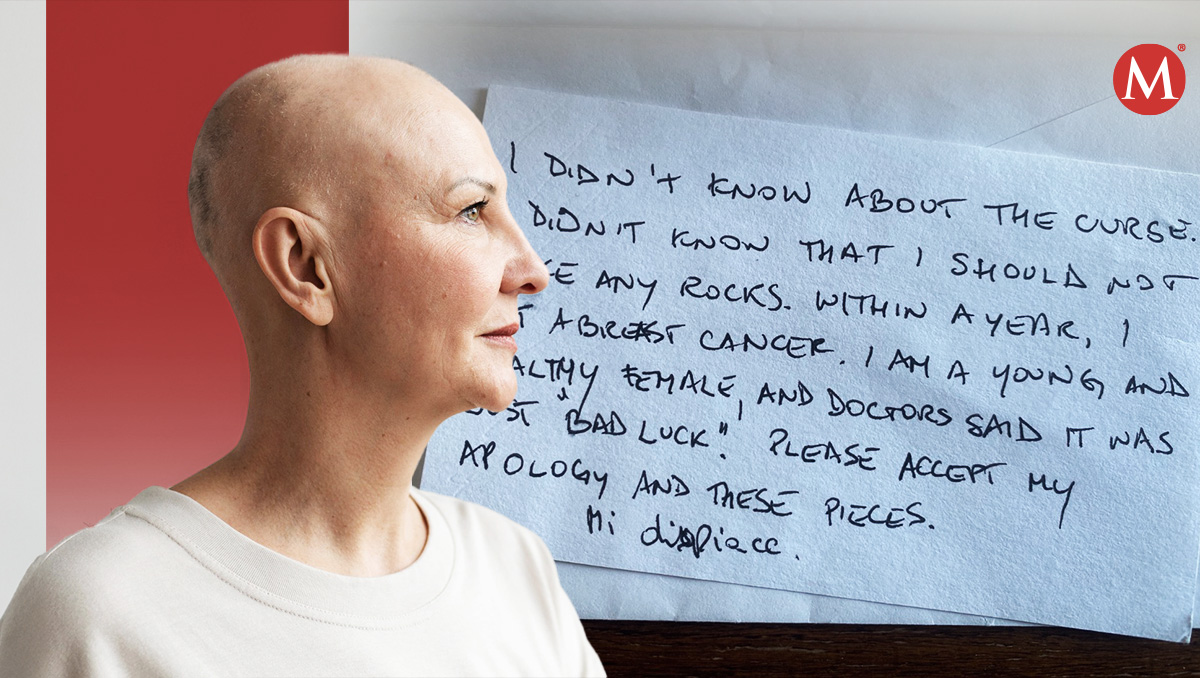 M®
I DIDN'T KNOW ABOUT THE CURSE.
DIDN'T KNOW THAT I SHOULD NOT
ANY ROCKS. WITHIN A YEAR, I
A BREAST CANCER. I AM A YOUNG AND
FEMALE, AND DOCTORS SAID IT WAS
"BAD LUCK". PLEASE ACCEPT MY
APOLOGY AND THESE PIECES.
Mi dispiace.